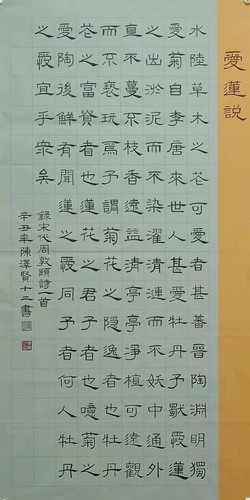 愛蓮說
水陸草木之花可愛者甚蕃晉陶淵明獨
愛菊自李唐來世人甚愛牡丹予獨愛蓮
之出淤泥而不染濯清漣而不妖中通外
直不蔓不枝香遠益清亭亭淨植可遠觀
而不褻玩焉予謂菊花之隱逸者也牡丹
花之富貴者也蓮花之君子者也噫菊之
愛陶後鮮有聞蓮之愛同予者何人牡丹
之愛宜乎衆矣
錄宋代周敦頤詩一首
辛丑年陳澤賢十二書